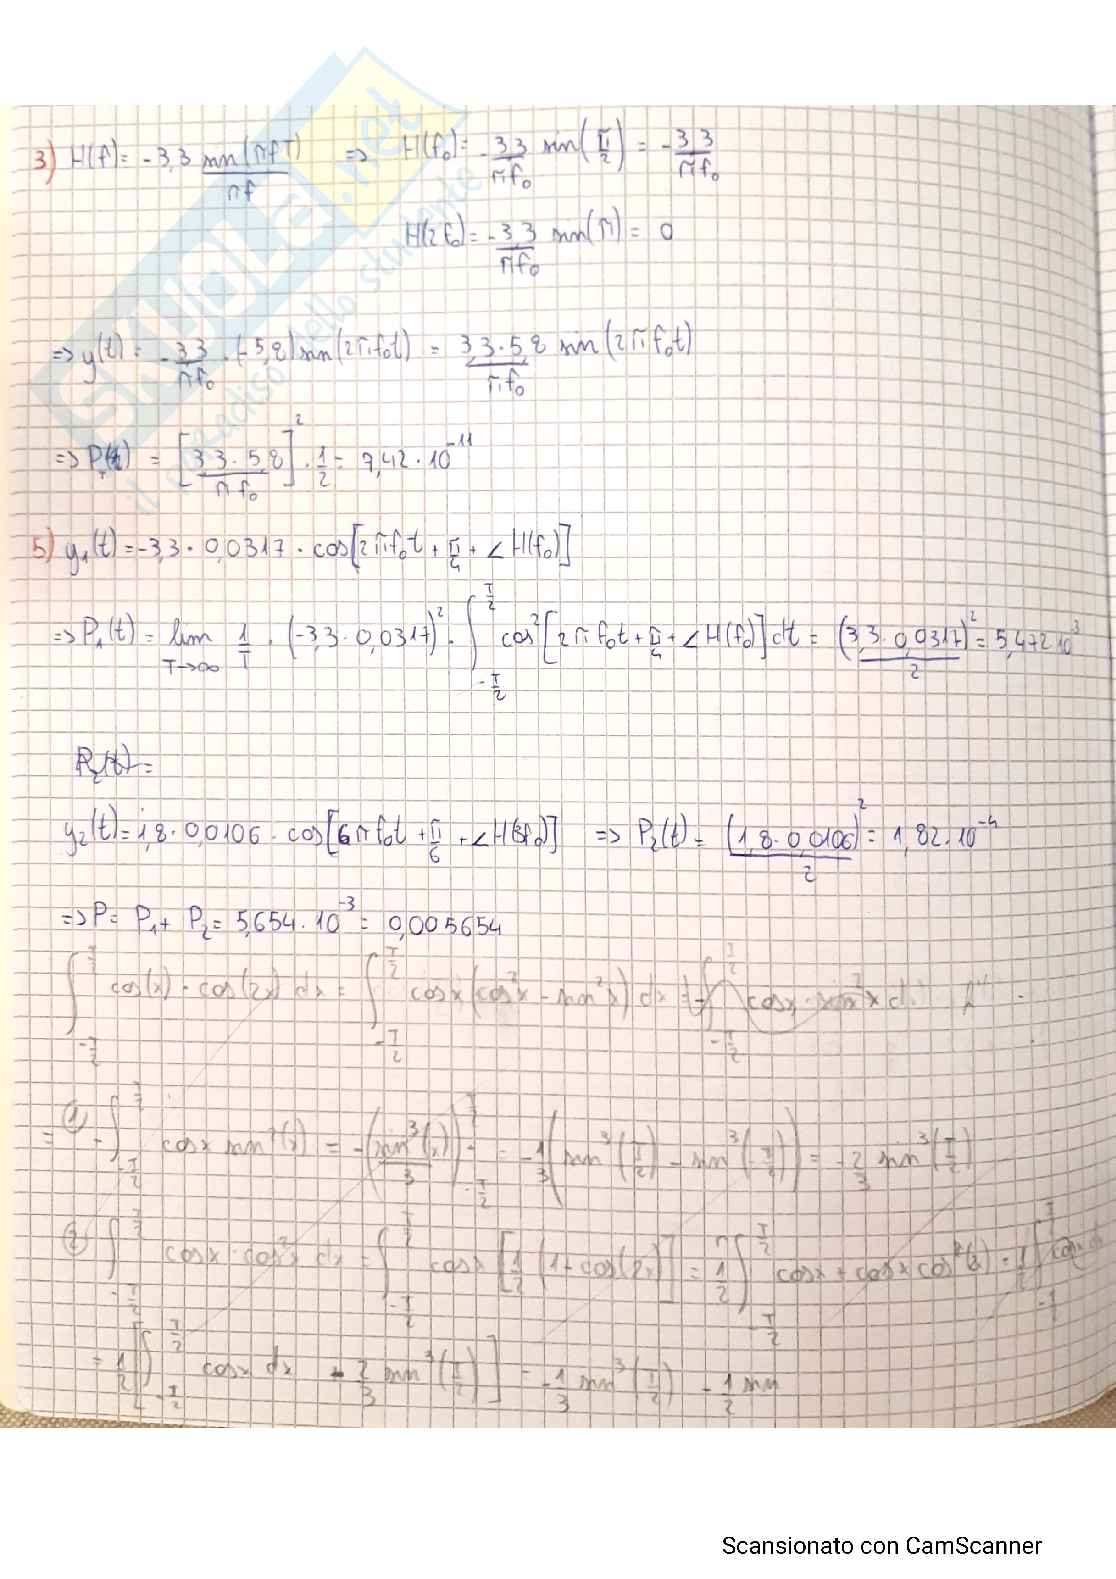 3) H(f) = -3,3 sin(πfT)/πf ⇒ H(f₀) = -3,3/πf₀ sin(π/2) = -3,3/πf₀
H(2f₀) = -3,3/πf₀ sin(π) = 0
⇒ y(t) = -3,3/πf₀ · (-5,8) sin(2πf₀t) = 3,3·5,8/πf₀ sin(2πf₀t)
⇒ P = [3,3·5,8/πf₀]² · 1/2 = 7,42·10⁻¹¹
5) y₁(t) = -3,3 · 0,0317 · cos[2πf₀t + π/4 + ∠H(f₀)]
⇒ P₁(t) = lim T→∞ 1/T · (-3,3·0,0317)² · ∫_{-T/2}^{T/2} cos²[2πf₀t + π/4 + ∠H(f₀)] dt = (3,3·0,0317)²/2 = 5,472·10⁻³
P₂(t) =
y₂(t) = 1,8·0,0106 · cos[6πf₀t + π/6 + ∠H(3f₀)] ⇒ P₂(t) = (1,8·0,0106)²/2 = 1,82·10⁻⁴
⇒ P = P₁ + P₂ = 5,654·10⁻³ = 0,005654
∫_{-T/2}^{T/2} cos(x) · cos(2x) dx = ∫_{-T/2}^{T/2} cosx (cos²x - sin²x) dx = -∫_{-T/2}^{T/2} cosx · sin²x d
= ① -∫_{-T/2}^{T/2} cosx sin²(x) = -(sin³(x)/3)_{-T/2}^{T/2} = -1/3 (sin³(T/2) - sin³(-T/2)) = -2/3 sin³(T/2)
② ∫_{-T/2}^{T/2} cosx · cos²x dx = ∫_{-T/2}^{T/2} cosx [1/2 (1+cos(2x)] = 1/2 ∫_{-T/2}^{T/2} cosx + cosx cos²(x) - 1/2 ∫ cosx
= 1/2 [∫_{-T/2}^{T/2} cosx dx - 2/3 sin³(T/2)] = -1/3 sin³(T/2) - 1/2 sin
SKUOLA.net
il paradiso dello studente
Scansionato con CamScanner